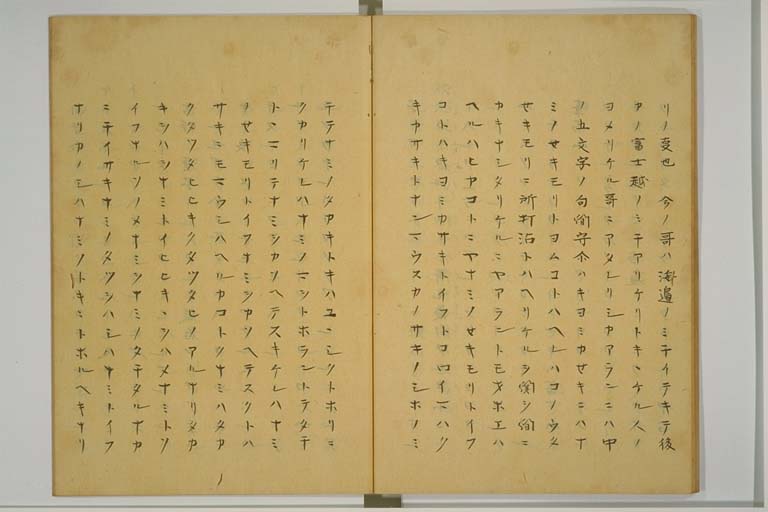 リノ変也 今ノ哥ハ海邉ノミチイテキテ後
カノ富士越ノミチアリケリトキヽケル人ノ
ヨメリケル哥ニアタレリシカアランニハ中
ノ五文字ノ句関守介ハキヨミカせキニハナ
ミノせキモリトヨムコトハヘレハコノウタ
せキモリニ所打沾トハヘリケルヲ関シ関ニ
カキナシタリケルニヤアラントモオホエハ
ヘルハヒカコトニヤナミノせキモリトイフ
コトハキヨミカサキトイフトコロイマハク
キカサキトナンマウスカノサキノシホノミ
テテサミノタカキトキハユヽシクトホリニ
クカリケレハナミノマントホラントテタチ
トマリテナミシカソヘテスキケレハナミ
ノせキモリトイフナミシカソヘテスクトハ
サキニモマウシハヘルカコトクナミハタカ
クタツタヒヒキクタツタヒノアルナリタカ
キンハシナミトイヒヒキヽシハメナミトソ
イフナルソノメナミシナミノタチタルナカ
ニチイサキナミノタツシハシハナミトイフ
ナリカノシハナミノトキニトホルヘキナリ